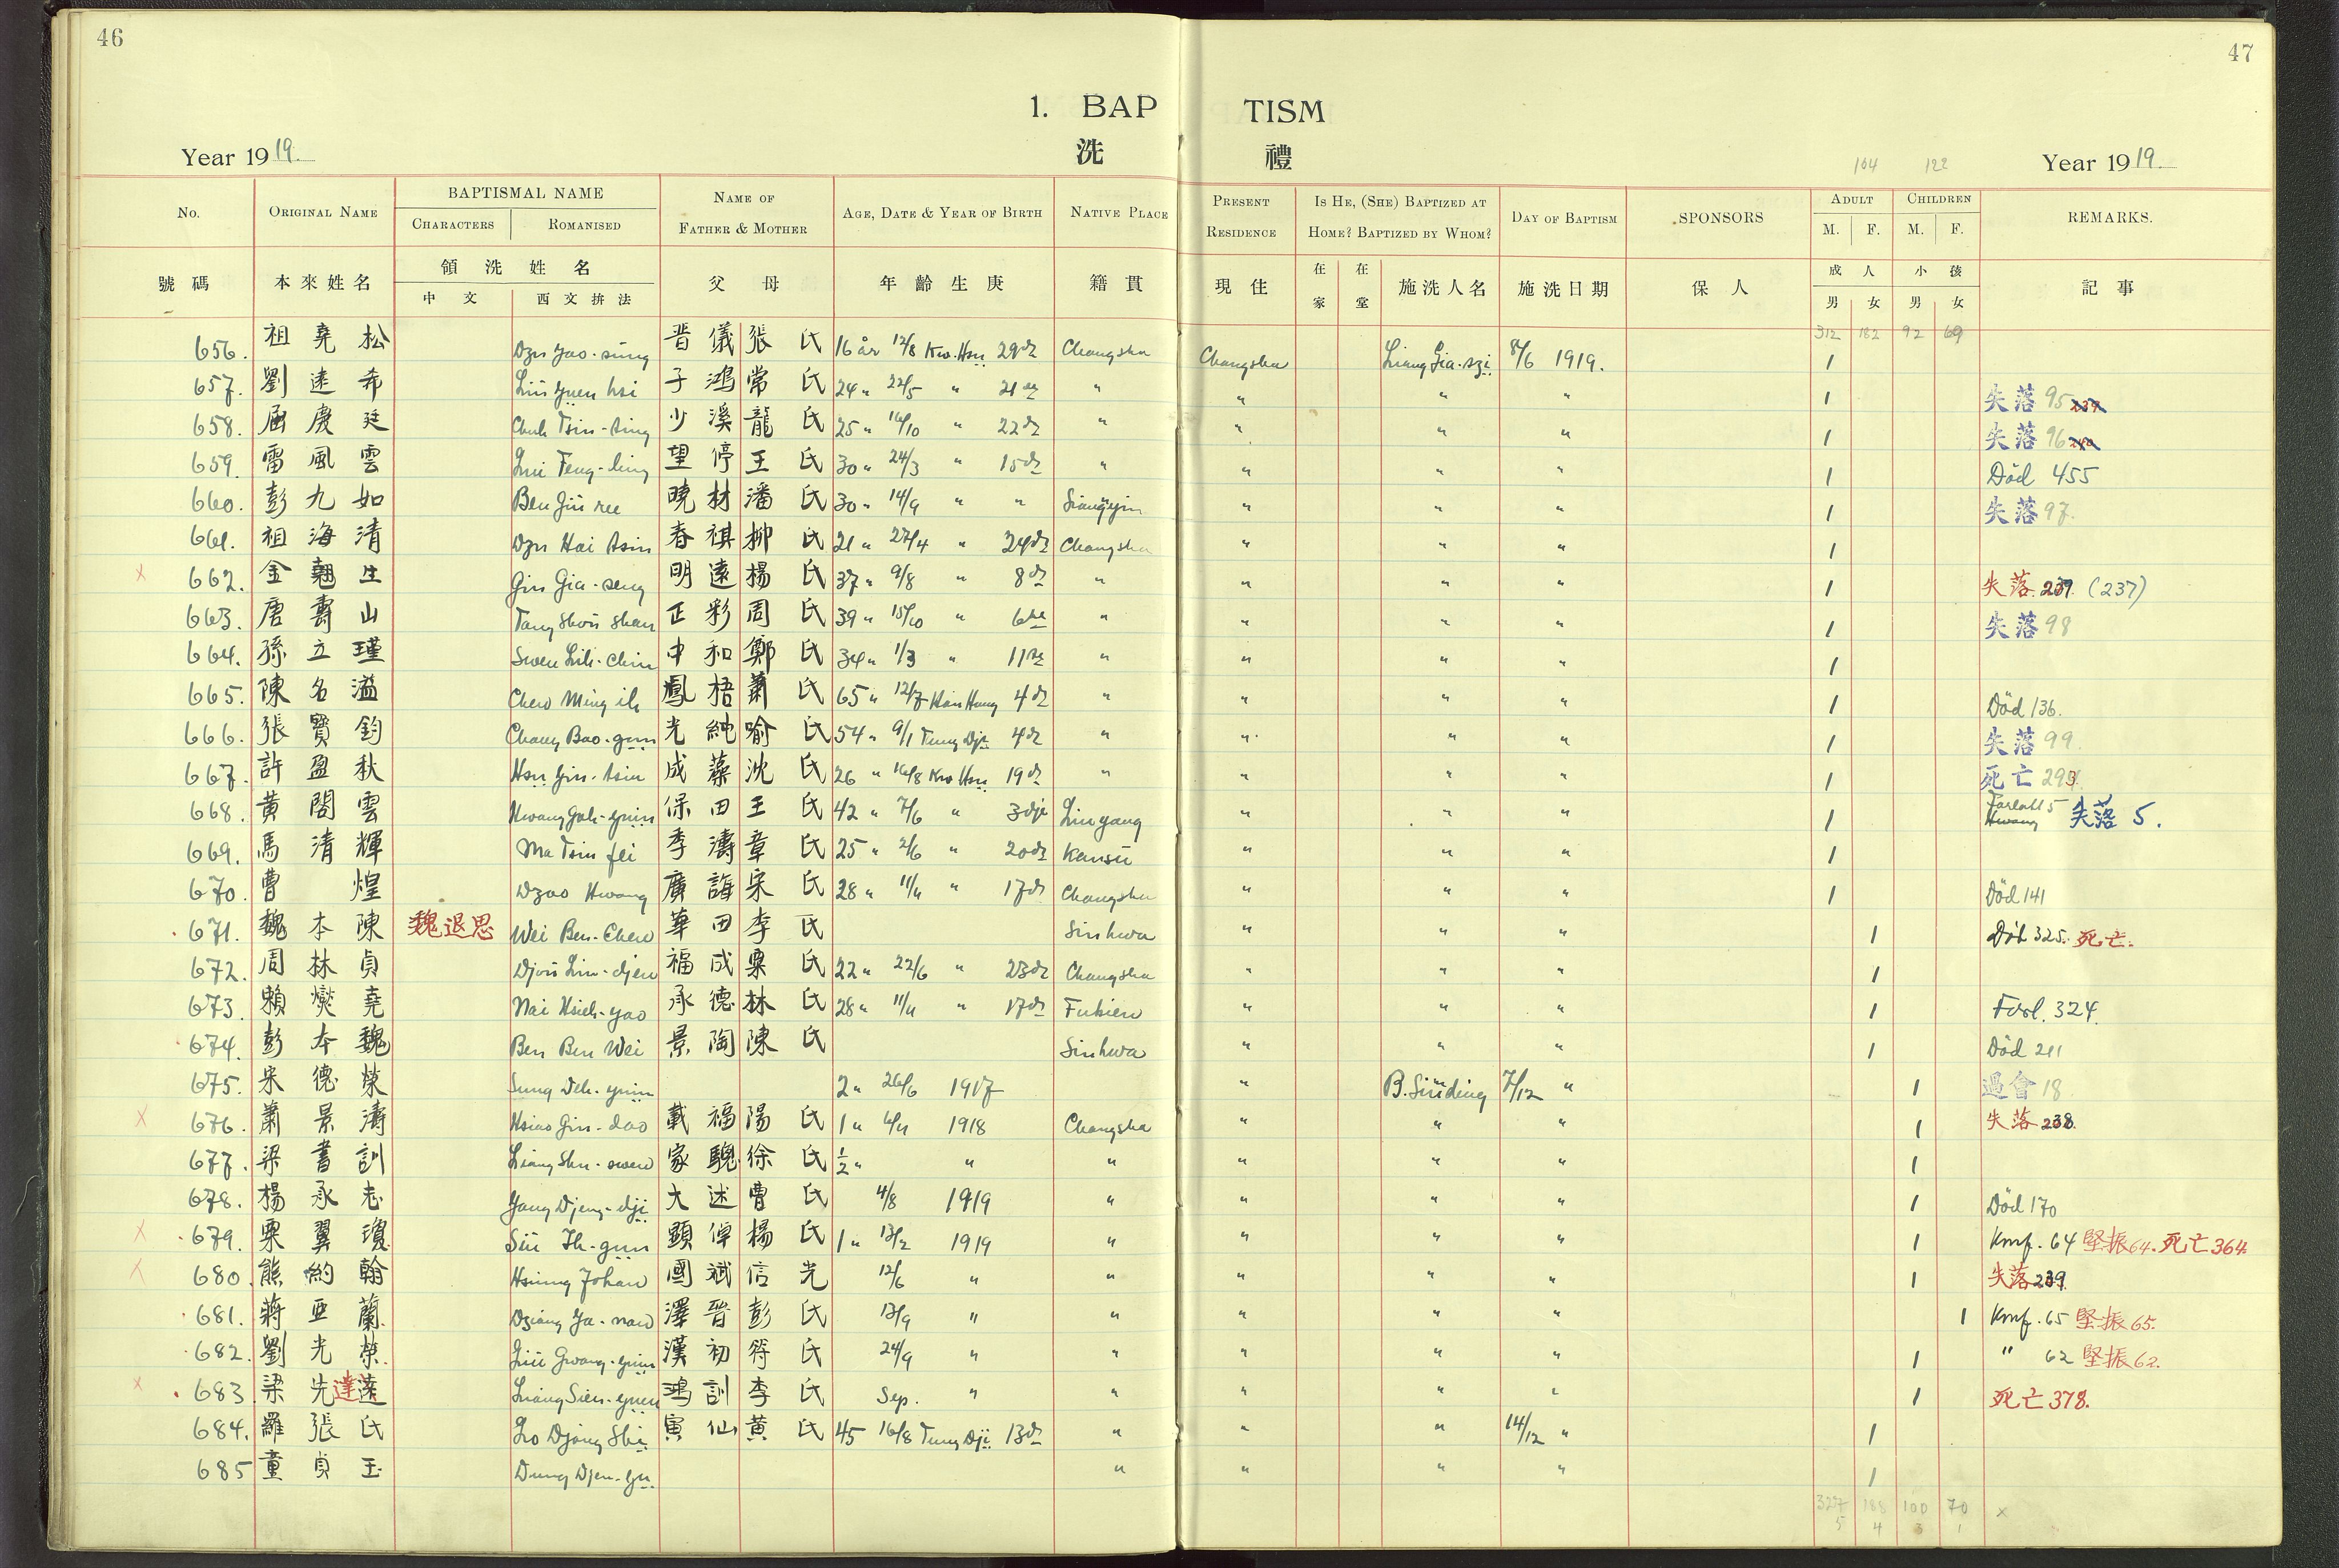 46
47
1. BAP TISM
洗 禮
Year 1919.
104 122
Year 1919.
No. ORIGINAL NAME BAPTISMAL NAME NAME OF FATHER & MOTHER AGE, DATE & YEAR OF BIRTH NATIVE PLACE PRESENT RESIDENCE IS HE, (SHE) BAPTIZED AT HOME? BAPTIZED BY WHOM? DAY OF BAPTISM SPONSORS ADULT CHILDREN REMARKS.
CHARACTERS ROMANISED M. F. M. F.
號碼 本來姓名 領洗姓名 父母 年齡生庚 籍貫 現住 在家 在堂 施洗人名 施洗日期 保人 成人 小孩 記事
中文 西文拚法 男 女 男 女
312 182 92 69
656. 祖堯松 Dzu Yao-sung 晋儀 張氏 16 år 12/8 Kw. Hsü 29 Changsha Changsha Liang Gia-szi 8/6 1919. 1
657. 劉達希 Liu Yuen hsi 子鴻 常氏 24 " 22/5 " 21 " " " " 1 失落 95
658. 屈慶廷 Chuh Tsin-ting 少溪 龍氏 25 " 16/10 " 22 " " " " 1 失落 96
659. 雷風雲 望停 王氏 30 " 24/3 " 15 " " " " 1 Död 455
660. 彭九如 Ben Jiu ree 曉材 潘氏 30 " 14/9 " " Siangyin " " " 1 失落 97.
661. 祖海清 Dzu Hai tsin 春祺 柳氏 21 " 27/4 " 24 Changsha " " " 1
x 662. 金翹生 Gin Gia-seng 明遠 楊氏 37 " 9/8 " 8 " " " " 1 失落. 239. (237)
663. 唐壽山 Tang Shou Shan 正彩 周氏 39 " 15/10 " 6 " " " " 1 失落 98
664. 孫立瑾 Swen Lih-Chin 中和 鄭氏 34 " 1/3 " 11 " " " " 1
665. 陳名溢 Chen Ming ih 鳳梧 蕭氏 65 " 12/7 4 " " " " 1 Död 136.
666. 張寶鈞 Chang Bao-gun 光純 喻氏 54 " 9/1 Tung Dji 4 " " " " 1 失落 99.
667. 許盈秋 Hsu Yin-tsiu 成藻 沈氏 26 " 16/8 Kw Hsü 19 " " " " 1 死亡 293
668. 黃閣雲 Hwang Goh-yuin 保田 王氏 42 " 7/6 " 3 Liuyang " " " 1 Hwang 失落 5.
669. 馬清輝 Ma Tsin fei 季濤 章氏 25 " 2/6 " 20 Kansu " " " 1
670. 曹煌 Dzao Hwang 廣誨 宋氏 28 " 11/11 " 17 Changsha " " " 1 Död 141
671. 魏本陳 魏退思 Wei Ben-Chen 華田 李氏 Sinhwa " " " 1 Död 325. 死亡.
672. 周林貞 Djou Lin-djen 福成 粟氏 22 " 22/6 " 23 Changsha " " " 1
673. 賴燮堯 Nai Hsieh-yao 承德 林氏 28 " 11/11 " 17 Fukien " " " 1 324.
674. 彭本魏 Ben Ben Wei 景陶 陳氏 Sinhwa " " " 1 Död 211
675. 宋德榮 Sung Deh-yuin 2 " 26/6 1917 " B. Sinding 7/12 " 1 過會 18
x 676. 蕭景濤 Hsiao Gin-dao 載福 陽氏 1 " 1918 Changsha " " " 1 失落 238.
677. 梁書訓 Liang Shu-swen 家驄 徐氏 ½ " " " " " " 1
678. 楊承志 Yang Djeng-dji 大述 曹氏 4/8 1919 " " " " 1 Död 170
x 679. 粟翼瓊 Sü Ih-gun 顕倬 楊氏 1 " 13/2 1919 " " " " 1 Kmf. 64 堅振 64. 死亡 364.
x 680. 熊約翰 Hsiung Johan 國斌 信光 12/6 " " " " " 1 失落 239.
681. 蔣亜蘭 Dziang Ya-nan 澤晉 彭氏 13/9 " " " " " 1 Kmf. 65 堅振 65.
682. 劉光榮 Liu Gwang-yuin 漢初 符氏 24/9 " " " " " 1 " 62 堅振 62.
x 683. 梁先達 Liang Sien-yuen 鴻訓 李氏 Sep. " " " " " 1 死亡 378.
684. 羅張氏 Lo Djang Shi 寅仙 黃氏 45 16/8 Tung Dji 13 " " " 14/12 " 1
685 童貞玉 Dung Djen-yu " " " " 1
327 188 100 70 x
5 4 3 1